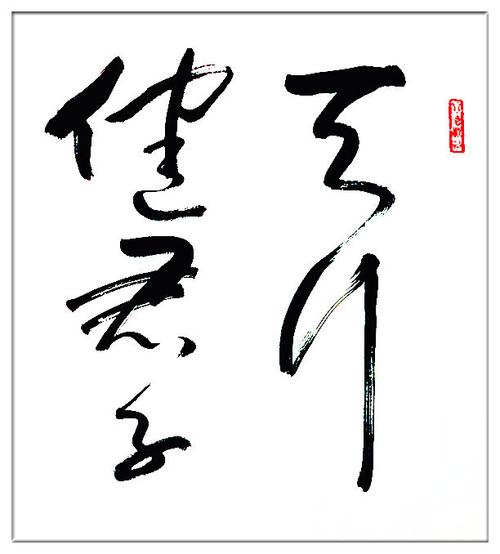 天行
健君子